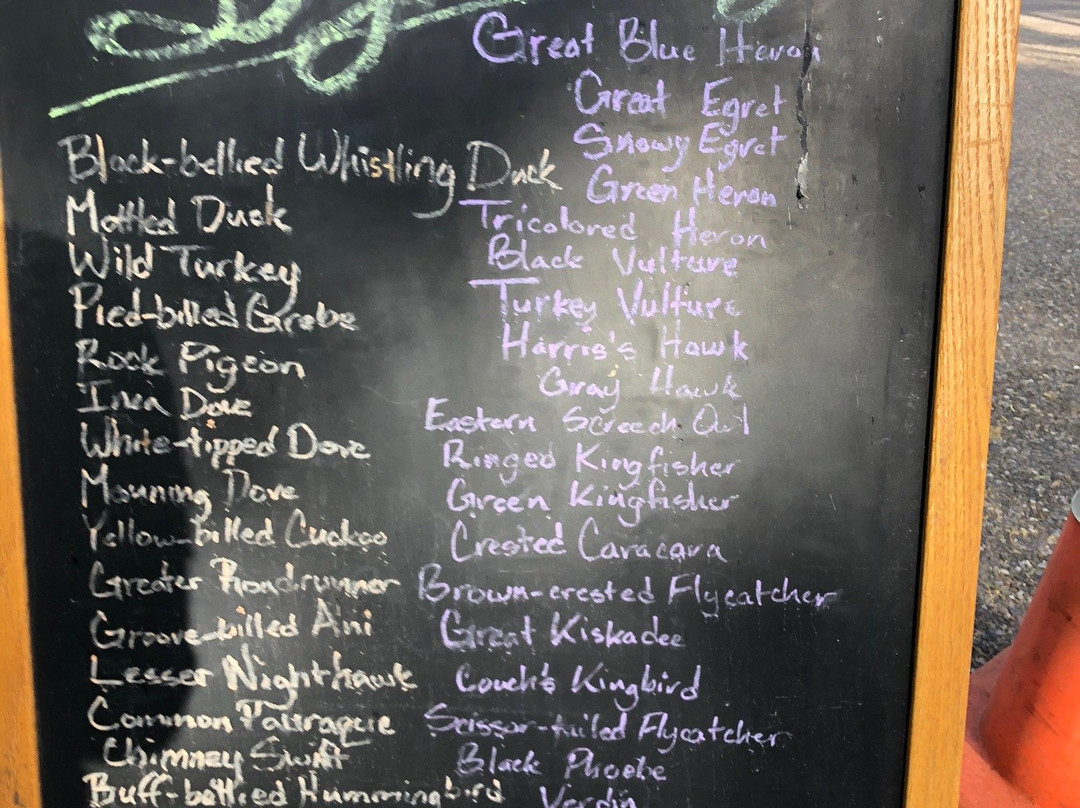 Black-bellied Whistling Duck
Mottled Duck
Wild Turkey
Pied-billed Grebe
Rock Pigeon
Inca Dove
White-tipped Dove
Mouning Dove
Yellow-billed Cuckoo
Greater Roadrunner
Groove-billed Ani
Lesser Nighthawk
Common Pauraque
Chimney Swift
Buff-bellied Hummingbird
Great Blue Heron
Great Egret
Snowy Egret
Green Heron
Tricolored Heron
Black Vulture
Turkey Vulture
Harris's Hawk
Gray Hawk
Eastern Screech Owl
Ringed Kingfisher
Green Kingfisher
Crested Caracara
Brown-crested Flycatcher
Great Kiskadee
Couch's Kingbird
Scissor-tailed Flycatcher
Black Phoebe
Verdin